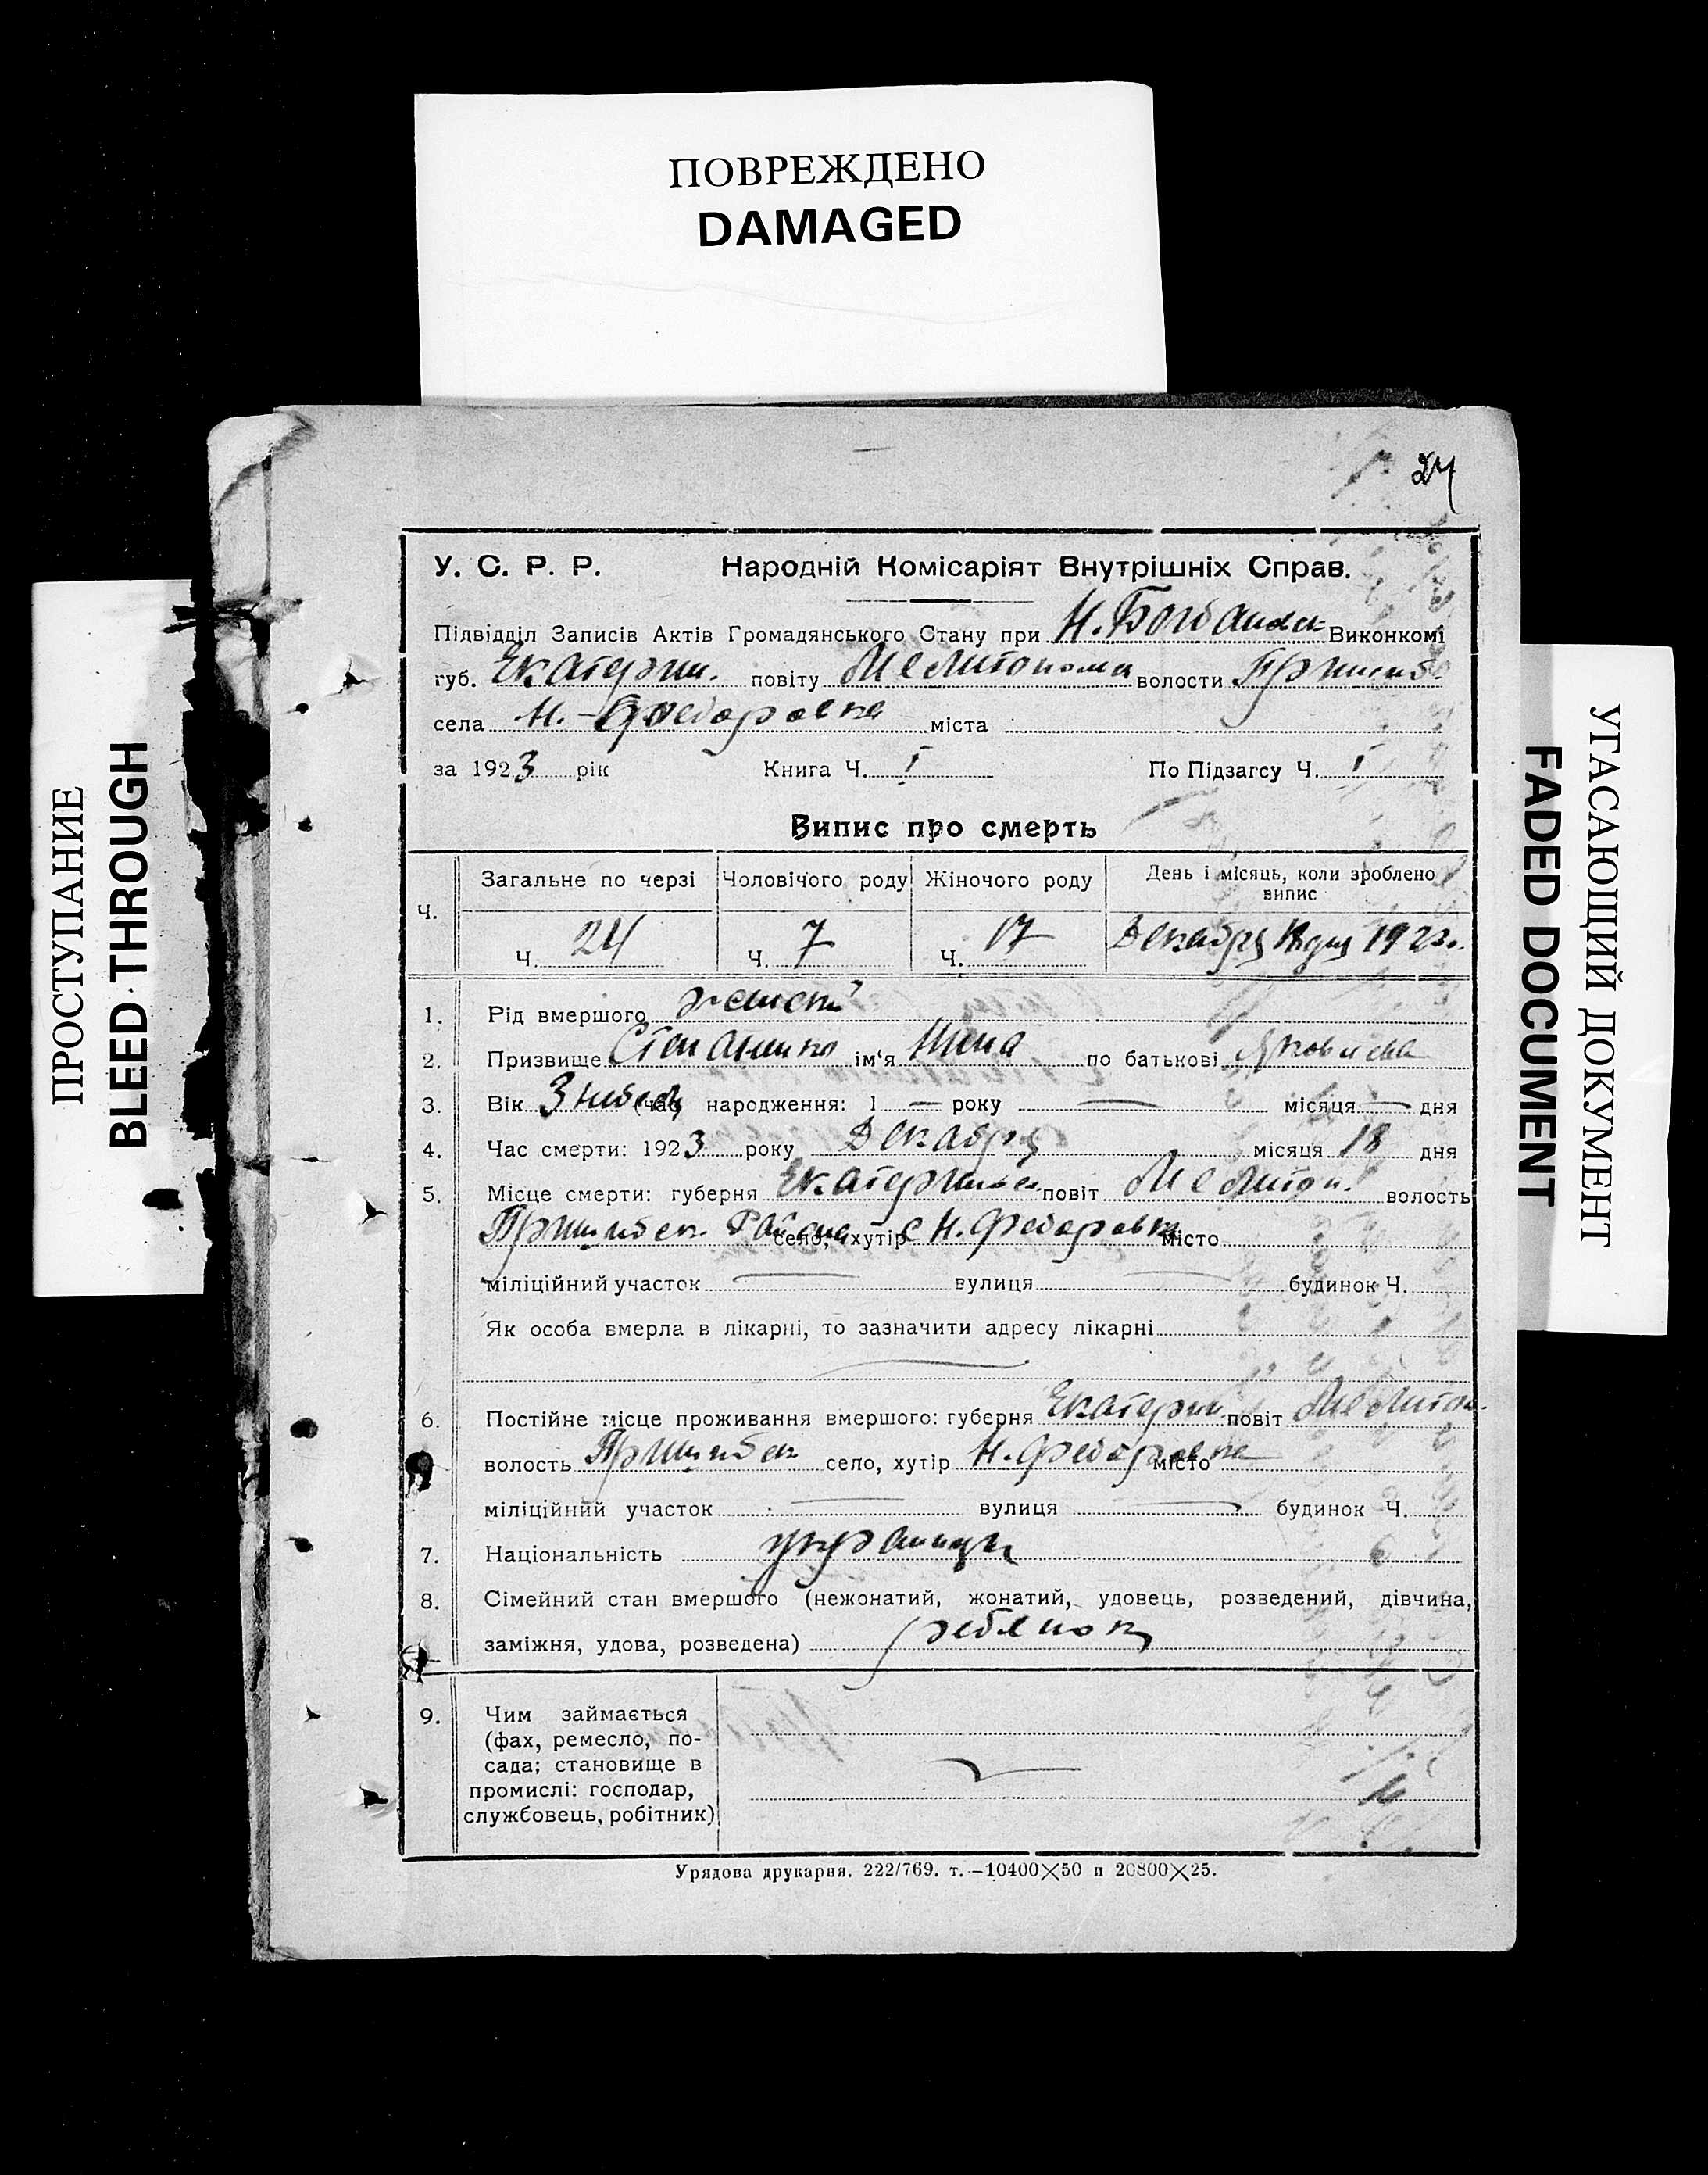 ПОВРЕЖДЕНО
DAMAGED
ПРОСТУПАНИЕ
BLEED THROUGH
УГАСАЮЩИЙ ДОКУМЕНТ
FADED DOCUMENT
24
У. С. Р. Р. Народній Комісаріят Внутрішніх Справ.
Підвідділ Записів Актів Громадянського Стану при Н. Богданск Виконкомі
губ. Екатерин. повіту Мелитопома волости Пришиб
села Н.-Федоровка міста
за 1923 рік Книга Ч. I По Підзагсу Ч. I
Випис про смерть
Ч. Загальне по черзі Чоловічого роду Жіночого роду День і місяць, коли зроблено випис
Ч. 24 Ч. 7 Ч. 17 Декабря 18 дня 1923.
1. Рід вмершого женский
2. Призвище Степаненко ім'я по батькові Яковлева
3. Вік 3 недел (час народження: 1 — року — місяця — дня
4. Час смерти: 1923 року Декабря місяця 18 дня
5. Місце смерти: губерня Екатеринос повіт Мелитоп. волость
Пришибск. Района село, хутір с Н. Федоровка місто
міліційний участок — вулиця — будинок Ч.
Як особа вмерла в лікарні, то зазначити адресу лікарні
—
6. Постійне місце проживання вмершого: губерня Екатерин повіт Мелитоп.
волость Пришибск село, хутір Н. Федоровка місто
міліційний участок — вулиця — будинок Ч.
7. Національність украинци
8. Сімейний стан вмершого (нежонатий, жонатий, удовець, розведений, дівчина,
заміжня, удова, розведена) ребенок
9. Чим займається
(фах, ремесло, по-
сада; становище в
промислі: господар,
службовець, робітник)
Урядова друкарня. 222/769. т.—10400×50 п 20800×25.